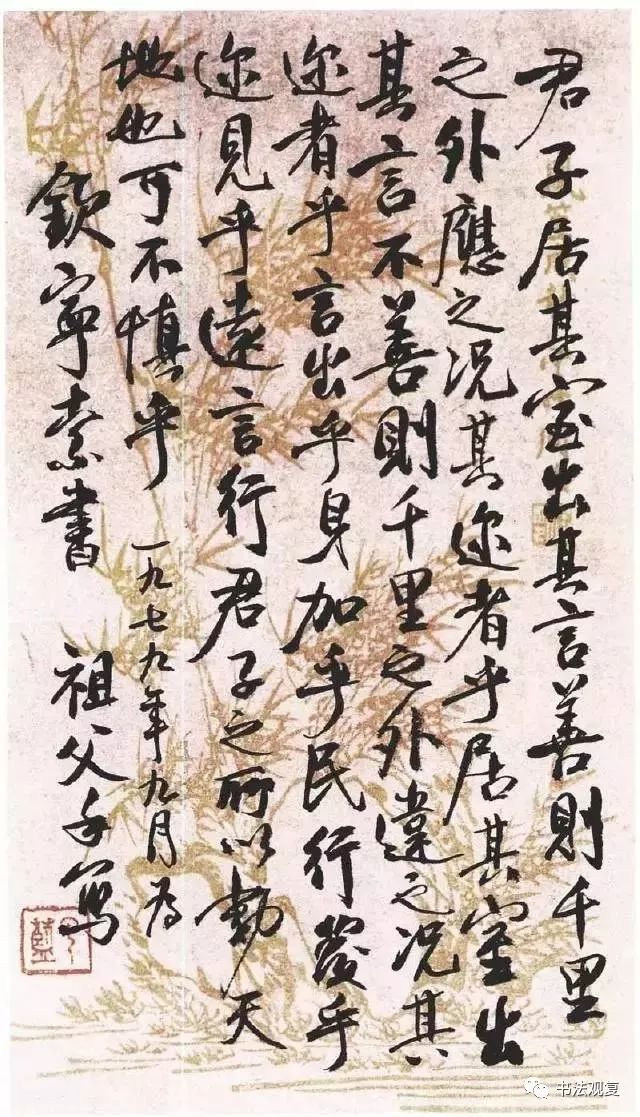 君子居其室出其言善則千里
之外應之况其迩者乎居其室出
其言不善則千里之外違之况其
迩者乎言出乎身加乎民行發乎
迩見乎遠言行君子之所以動天
地也可不慎乎 一九七九年九月为
欽寧索書 祖父手寫
书法观复